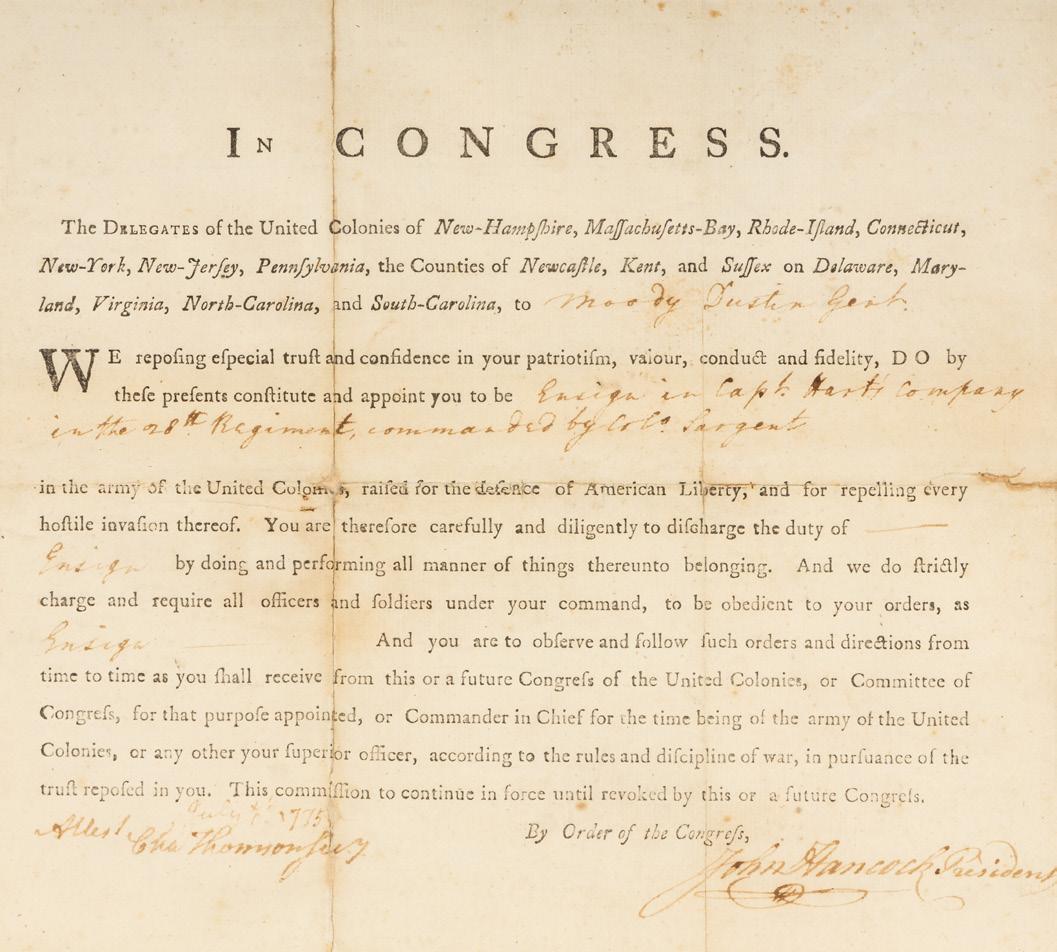 IN CONGRESS.
The DELEGATES of the United Colonies of New-Hampſhire, Maſſachuſetts-Bay, Rhode-Iſland, Connecticut,
New-York, New-Jerſey, Pennſylvania, the Counties of Newcaſtle, Kent, and Suſſex on Delaware, Mary-
land, Virginia, North-Carolina, and South-Carolina, to Moody Dustin Gent.
WE repoſing eſpecial truſt and confidence in your patriotiſm, valour, conduct and fidelity, DO by
theſe preſents conſtitute and appoint you to be Ensign in Capt. Hart's Company
in the 28th Regiment, commanded by Colo. Sargent
in the army of the United Colonies, raiſed for the defence of American Liberty, and for repelling every
hoſtile invaſion thereof. You are therefore carefully and diligently to diſcharge the duty of
Ensign by doing and performing all manner of things thereunto belonging. And we do ſtrictly
charge and require all officers and ſoldiers under your command, to be obedient to your orders, as
Ensign And you are to obſerve and follow ſuch orders and directions from
time to time as you ſhall receive from this or a future Congreſs of the United Colonies, or Committee of
Congreſs, for that purpoſe appointed, or Commander in Chief for the time being of the army of the United
Colonies, or any other your ſuperior officer, according to the rules and diſcipline of war, in purſuance of the
truſt repoſed in you. This commiſſion to continue in force until revoked by this or a future Congreſs.
July 1775
By Order of the Congreſs,
Attest Cha Thomson Secy
John Hancock President